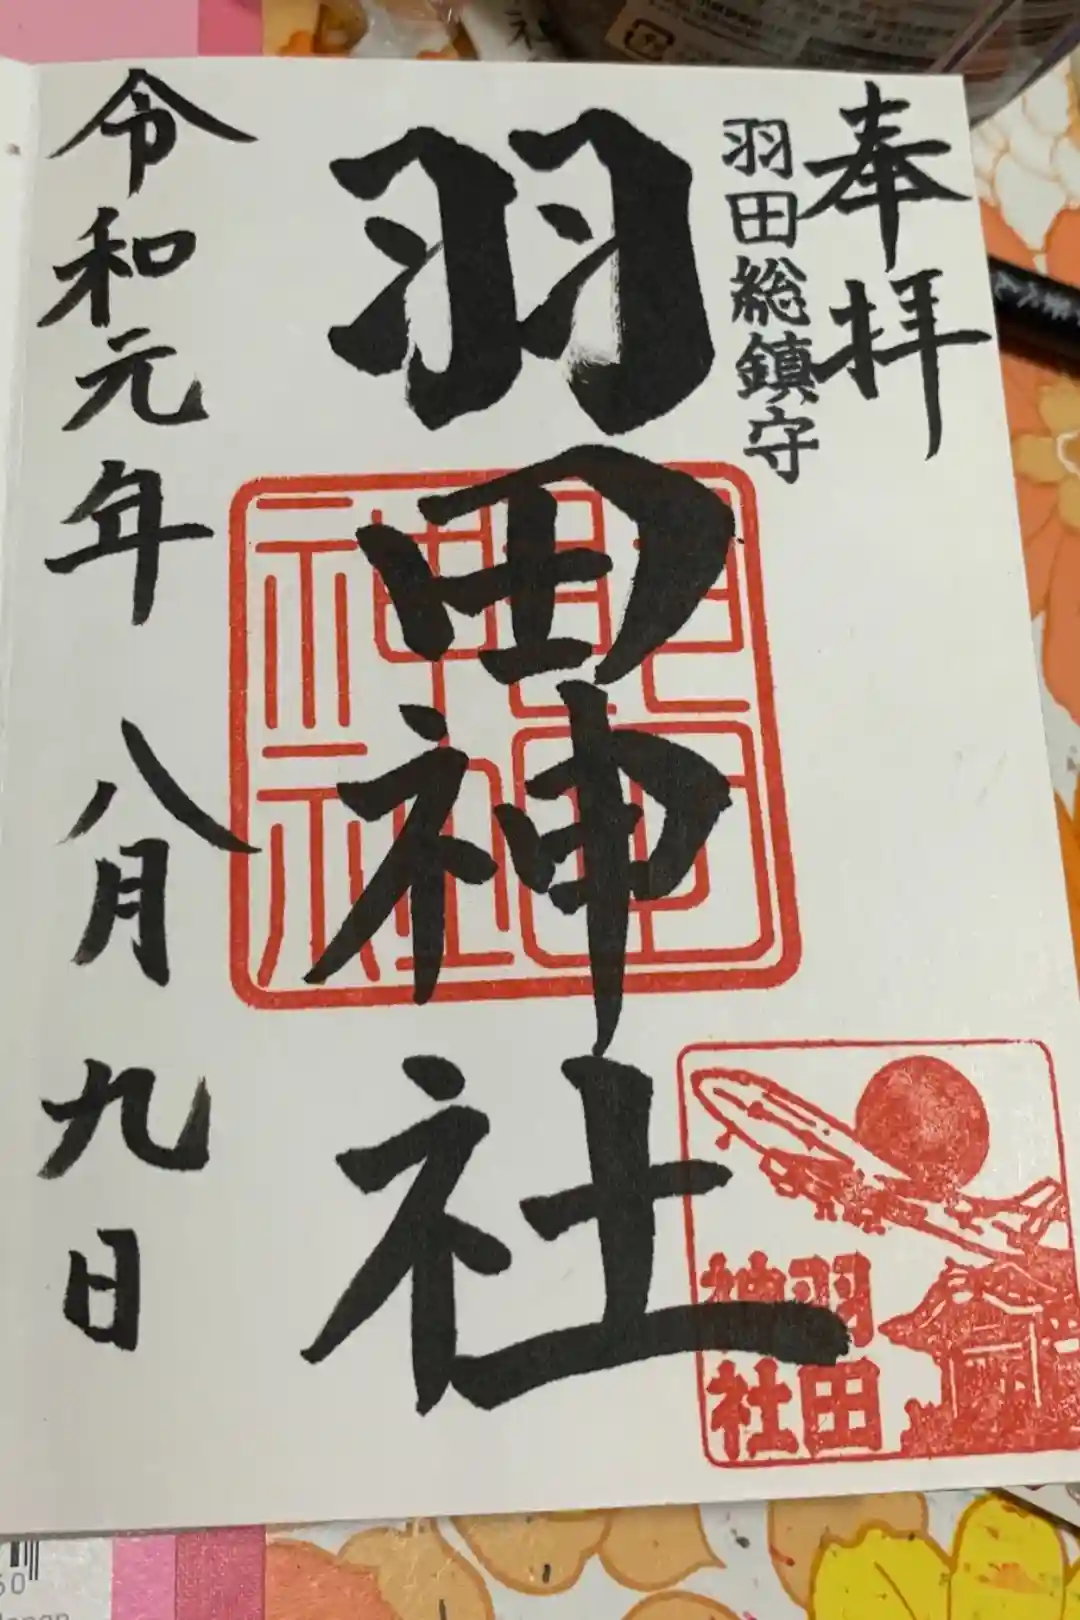 奉拝
羽田総鎮守
羽田神社
令和元年 八月 九日
羽田
神社